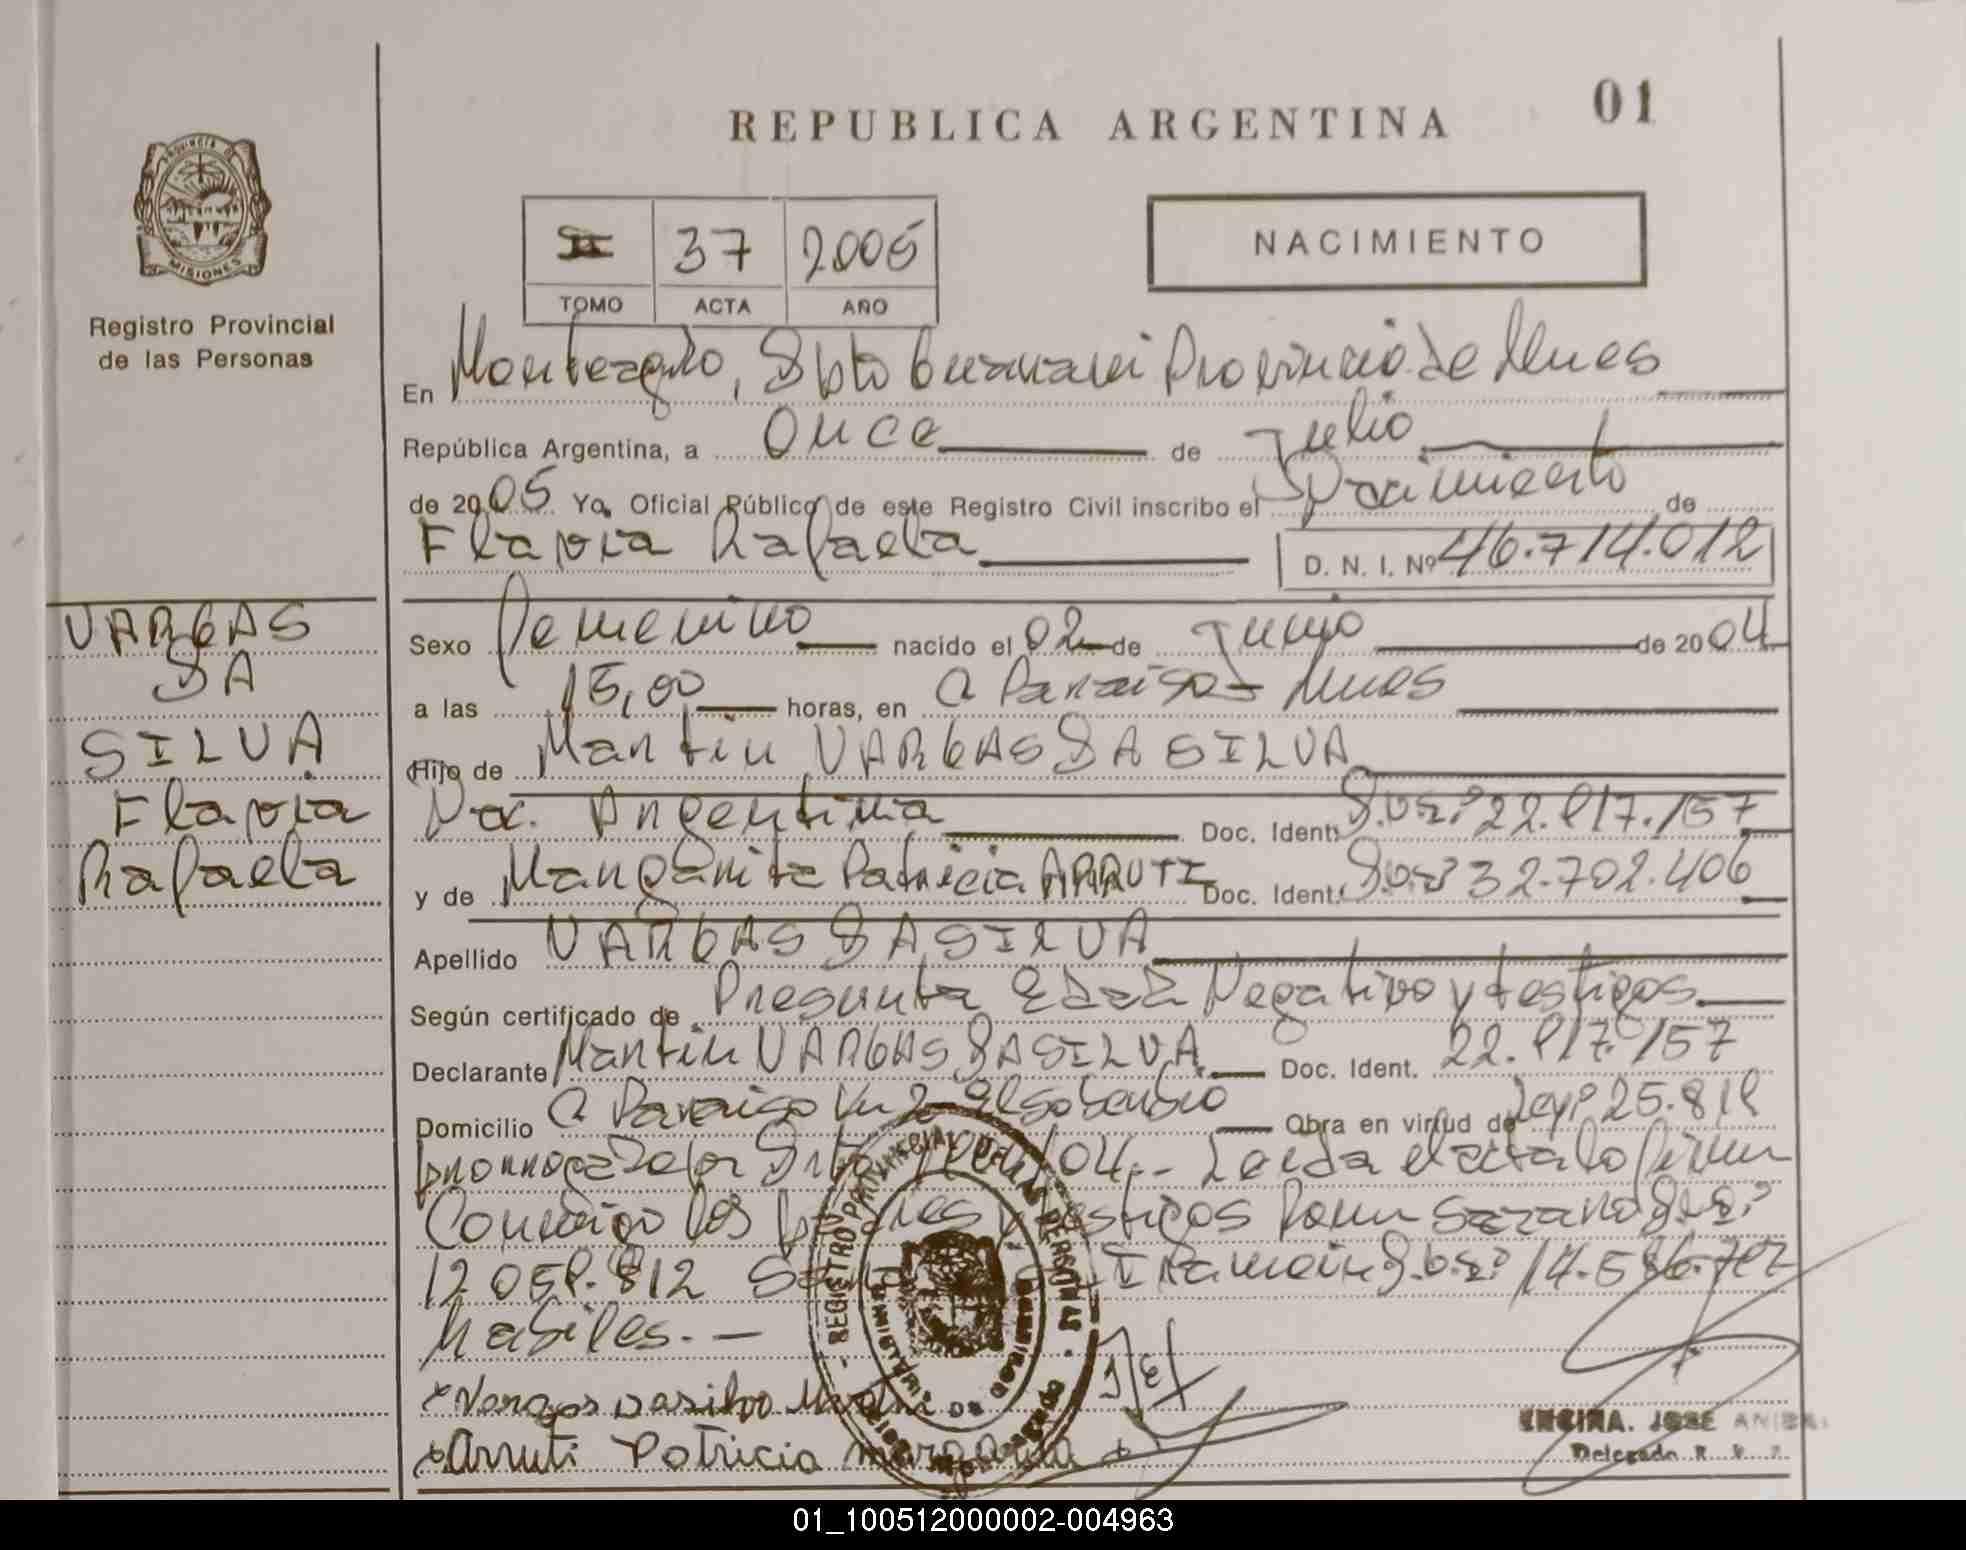 REPUBLICA ARGENTINA
01
PROVINCIA DE
MISIONES
Registro Provincial
de las Personas
II 37 2005
TOMO ACTA AÑO
NACIMIENTO
En Monteagudo, Dpto Guarani Provincia de Mnes
República Argentina, a Once de Julio
de 2005 Yo, Oficial Público de este Registro Civil inscribo el Nacimiento de
Flavia Rafaela D. N. I. Nº 46.714.012
VARGAS
DA
SILVA
Flavia
Rafaela
Sexo Femenino nacido el 02 de Junio de 2004
a las 15,00 horas, en C Paraiso - Mnes
Hijo de Martin VARGAS DA SILVA
Nac. Argentina Doc. Ident. 22.817.157
y de Margarita Patricia ARRUTI Doc. Ident. 32.702.406
Apellido VARGAS DA SILVA
Según certificado de Presunta Edad Negativo y testigos
Declarante Martin VARGAS DA SILVA. Doc. Ident. 22.817.157
Domicilio C Paraiso Km 2 El Soberbio Obra en virtud de Ley 25.818
prorrogada por /04.- Leida el acta lo firman
Conmigo los padres y testigos
12.058.812 14.586.
habiles.-
Vargas Dasilva
Arruti Patricia margarita
REGISTRO PROVINCIAL DE LAS PERSONAS
ENCINA. JOSE ANIBAL
Delegado R. P. P.
01_100512000002-004963